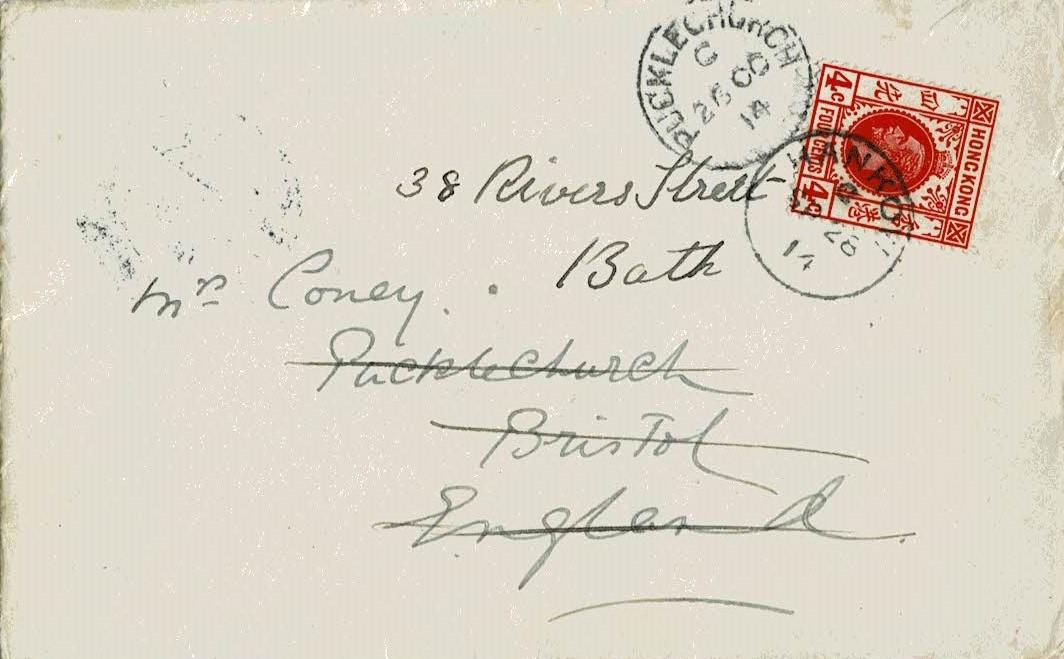 PUCKLECHURCH
26 OC
14
4c
FOUR CENTS
4c
HONG KONG
HANKOW
28
14
38 Rivers Street
Bath
Mrs Coney.
Pucklechurch
Bristol
England.